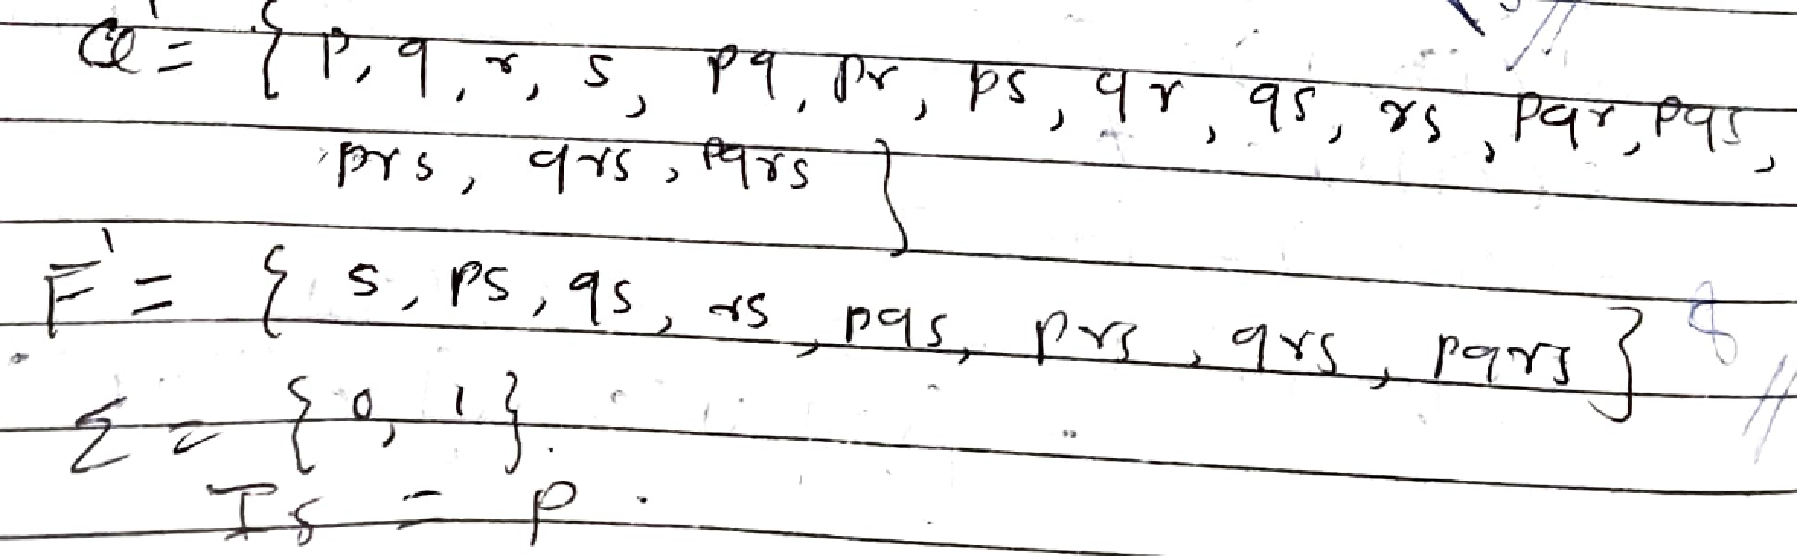 Q' = { p, q, r, s, pq, pr, ps, qr, qs, rs, pqr, pqs,
prs, qrs, pqrs }
F' = { s, ps, qs, rs, pqs, prs, qrs, pqrs }
Σ = { 0, 1 }.
Is = p.